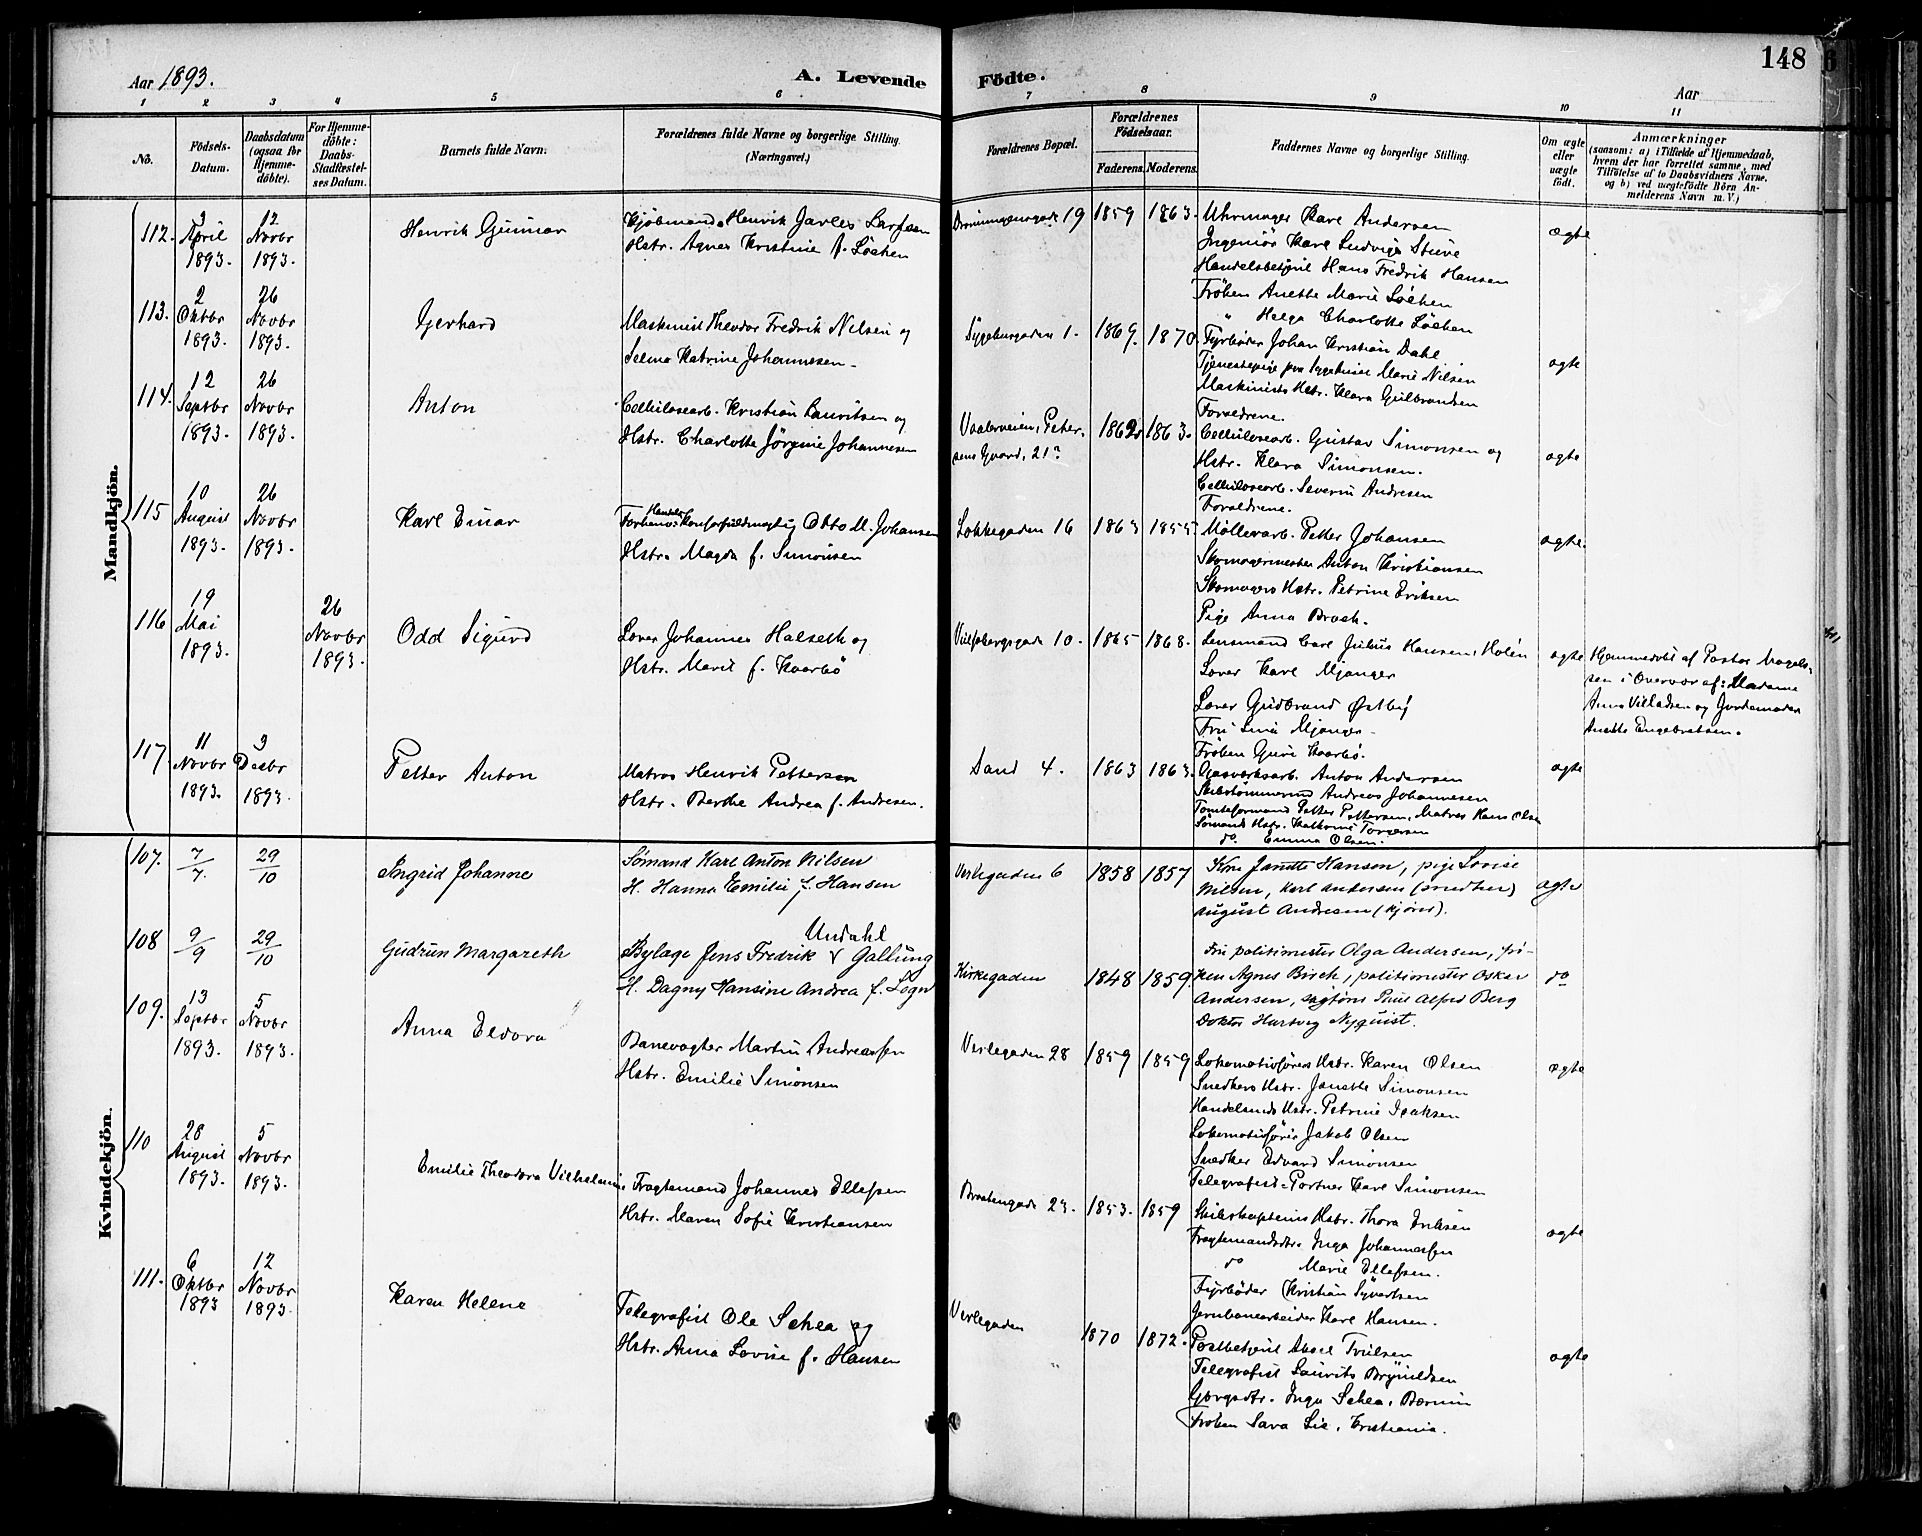 148
Aar 1893.
A. Levende Födte.
Aar
1 2 3 4 5 6 7 8 9 10 11
No.
Födsels-Datum.
Daabsdatum (ogsaa for Hjemme-döbte).
For Hjemme-döbte: Daabs-Stadfæstel-ses Datum.
Barnets fulde Navn.
Forældrenes fulde Navne og borgerlige Stilling. (Næringsvei.)
Forældrenes Bopæl.
Forældrenes Födselsaar.
Faderens. Moderens.
Faddernes Navne og borgerlige Stilling.
Om ægte eller uægte födt.
Anmærkninger
(saasom: a) i Tilfælde af Hjemmedaab,
hvem der har forrettet samme, med
Tilföielse af to Daabsvidners Navne,
og b) ved uægtefödte Börn An-
melderens Navn m. V.)
Mandkjön.
112. 3 April 1893. 12 Novbr 1893.
Henrik Gunnar
Kjöbmand Henrik Larsen
Hstr. Agnes Kristine f. Löchen
19 1859 1863.
Uhrmager Karl Andersen
Ingeniör Karl Ludvig
Handelsbetjent Hans Fredrik Hansen
Fröken Anette Marie Löchen
" Helga Charlotte Löchen
ægte
113. 2 Oktbr 1893. 26 Novbr 1893.
Gerhard
Maskinist Theodor Fredrik Nilsen og
Selma Katrine Johannesen
1. 1869. 1870
Fyrböder Johan Kristian Dahl
Tjenestepige Marie Nilsen
Maskinists Hstr. Klara Gulbrandsen
Forældrene.
ægte
114. 12 Septbr 1893. 26 Novbr 1893.
Anton
Cellulosearb. Kristian Lauritsen og
Hstr. Charlotte Jörgine Johannesen
Vaalerveien, Peter-
sens Gaard, 21
1862 1863.
Cellulosearb. Gustav Simonsen og
Hstr. Klara Simonsen.
Cellulosearb. Severin Andresen
Forældrene.
ægte
115 10 August 1893. 26 Novbr 1893.
Karl Einar
Otto M. Johansen
Hstr. Magda f. Simonsen
Lokkegaden 16 1863 1855
Möllerarb. Petter Johansen
Skomagermester Anton Kristiansen
Skomagers Hstr. Petrine Eriksen
Pige Anna
ægte.
116 19 Mai 1893. 26 Novbr 1893.
Odd Sigurd
Lærer Johannes Halseth og
Hstr. Marit f. Kaarbö
10. 1865 1868.
Lensmand Carl Julius Hansen, Holén
Lærer Karl Mjanger
Lærer Gudbrand Østby
Fru Mjanger
Fröken Guri Kaarbö.
ægte
Hjemmedöbt af Pastor
sen i Overvær af: Madame
Anna Villadsen og Jordemoder
Anette Engebretsen.
117 11 Novbr 1893. 3 Decbr 1893.
Petter Anton
Matros Henrik Pettersen
Hstr. Berthe Andrea f. Andresen.
Sand 4. 1863 1863.
Gasværksarb. Anton Andersen
Skibstömmermand Andreas Johannesen
Tomteformand Petter Pettersen, Matros Hans Olsen
Sömands Hstr. Torgersen
do. Emma Olsen.
ægte
Kvindekjön.
107. 7/7. 29/10
Ingrid Johanne
Sömand Karl Anton Nilsen
H. Hanna Emilie f. Hansen
Verlegaden 6 1858 1857
Kone Janette Hansen, pige Lovise
Nilsen, Karl Andersen (snedker)
August Andresen (kjörer).
ægte
108 9/9 29/10
Gudrun Margareth
Undahl
Jens Fredrik Gallung
H. Dagny Hansine Andrea f. Sogn
Kirkegaden 1848 1859.
Fru politimester Olga Andersen, frö-
ken Agnes Birch, politimester Oskar
Andersen, Alfred Berg
Doktor Hartvig Nyquist.
do
109. 13 Septbr 1893. 5 Novbr 1893.
Anna Eldora
Banevogter Martin Andreassen
Hstr. Emilie Simonsen
Verlegaden 28 1859 1859
Lokomotivförers Hstr. Karen Olsen
Snedkers Hstr. Janette Simonsen
Handelsmds Hstr. Petrine Isaksen
Lokomotivförer Jakob Olsen
Snedker Edvard Simonsen
Telegrafist-Portner Karl Simonsen
ægte
110 28 August 1893. 5 Novbr 1893.
Emilie Theodora Vilhelmine
Fragtemand Johannes Ellefsen
Hstr. Maren Sofie Kristiansen
23. 1853. 1859
Skibskapteins Hstr. Thora
Fragtemandsdtr. Inga Johannessen
do Marie Ellefsen.
Fyrböder Kristian Syvertsen
Jernbanearbeider Karl Hansen.
ægte
111. 6 Oktbr 1893 12 Novbr 1893.
Karen Helene
Telegrafist Ole Schea og
Hstr. Anna Lovise f. Hansen
Verlegaden 1870 1872.
Postbetjent Aksel Trulsen
Telegrafist Laurits Brynildsen
Inga Schea, Bærum
Fröken Sara Lie, Kristiania.
ægte